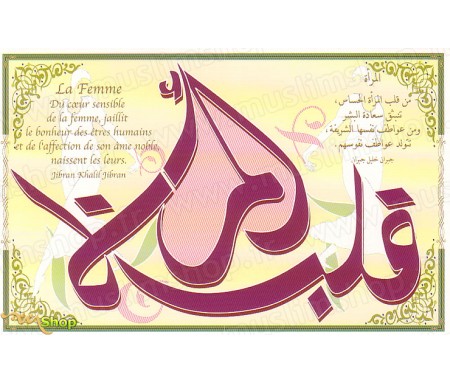 La Femme
Du cœur sensible
de la femme, jaillit
le bonheur des êtres humains
et de l'affection de son âme noble,
naissent les leurs.
Jibran Khalil Jibran
المرأة
من قلب المرأة الحساس ،
تنبثق سعادة البشر
ومن عواطف نفسها الشريفة ،
تتولد عواطف نفوسهم .
جبران خليل جبران
قلب المرأة
Shop